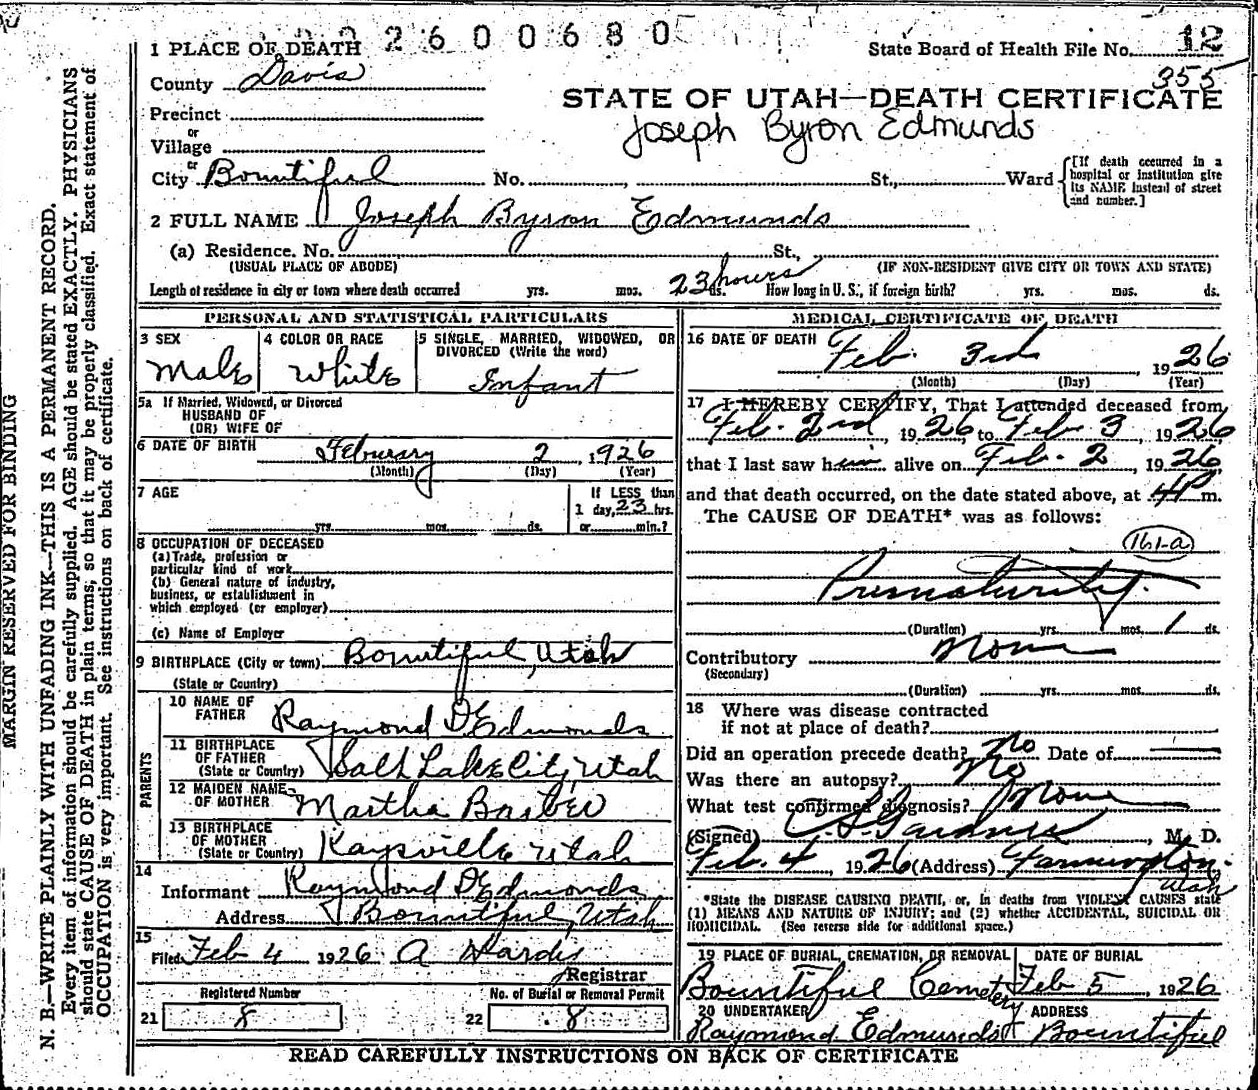 2600680
1 PLACE OF DEATH
State Board of Health File No. 12
355
County Davis
STATE OF UTAH—DEATH CERTIFICATE
Precinct
Joseph Byron Edmunds
or
Village
or
City Bountiful No. , St., Ward
[If death occurred in a hospital or institution give its NAME instead of street and number.]
2 FULL NAME Joseph Byron Edmunds
(a) Residence. No. St.,
(USUAL PLACE OF ABODE) (IF NON-RESIDENT GIVE CITY OR TOWN AND STATE)
Length of residence in city or town where death occurred yrs. mos. 23 hours ds. How long in U. S., if foreign birth? yrs. mos. ds.
PERSONAL AND STATISTICAL PARTICULARS
3 SEX
Male
4 COLOR OR RACE
White
5 SINGLE, MARRIED, WIDOWED, OR
DIVORCED (Write the word)
Infant
5a If Married, Widowed, or Divorced
HUSBAND OF
(OR) WIFE OF
6 DATE OF BIRTH Feburary 2, 1926
(Month) (Day) (Year)
7 AGE
yrs. mos. ds.
If LESS than
1 day, 23 hrs.
or min.?
8 OCCUPATION OF DECEASED
(a) Trade, profession or
particular kind of work
(b) General nature of industry,
business, or establishment in
which employed (or employer)
(c) Name of Employer
9 BIRTHPLACE (City or town) Bountiful, Utah
(State or Country)
PARENTS
10 NAME OF
FATHER Raymond D Edmunds
11 BIRTHPLACE
OF FATHER
(State or Country) Salt Lake City, Utah
12 MAIDEN NAME
OF MOTHER Martha Barber
13 BIRTHPLACE
OF MOTHER
(State or Country) Kaysville Utah
14
Informant Raymond D Edmunds
Address Bountiful, Utah
15
Filed Feb 4 1926 A
Registrar
Registered Number
21 8
No. of Burial or Removal Permit
22 8
MEDICAL CERTIFICATE OF DEATH
16 DATE OF DEATH Feb. 3rd 1926
(Month) (Day) (Year)
17 I HEREBY CERTIFY, That I attended deceased from
Feb. 2nd 1926, to Feb 3, 1926
that I last saw him alive on Feb. 2, 1926,
and that death occurred, on the date stated above, at 4P m.
The CAUSE OF DEATH* was as follows:
161-a
Prematurity.
(Duration) yrs. mos. 1 ds.
Contributory None
(Secondary)
(Duration) yrs. mos. ds.
18 Where was disease contracted
if not at place of death?
Did an operation precede death? No Date of
Was there an autopsy? No
What test confirmed diagnosis? None
(Signed) Gardner, M. D.
Feb. 4 1926 (Address) Farmington.
Utah
*State the DISEASE CAUSING DEATH, or, in deaths from VIOLENT CAUSES state
(1) MEANS AND NATURE OF INJURY; and (2) whether ACCIDENTAL, SUICIDAL OR
HOMICIDAL. (See reverse side for additional space.)
19 PLACE OF BURIAL, CREMATION, OR REMOVAL
Bountiful Cemetery
DATE OF BURIAL
Feb 5, 1926
20 UNDERTAKER
Raymond Edmunds
ADDRESS
Bountiful
READ CAREFULLY INSTRUCTIONS ON BACK OF CERTIFICATE
MARGIN RESERVED FOR BINDING
N. B.—WRITE PLAINLY WITH UNFADING INK—THIS IS A PERMANENT RECORD.
Every item of information should be carefully supplied. AGE should be stated EXACTLY. PHYSICIANS
should state CAUSE OF DEATH in plain terms, so that it may be properly classified. Exact statement of
OCCUPATION is very important. See instructions on back of certificate.